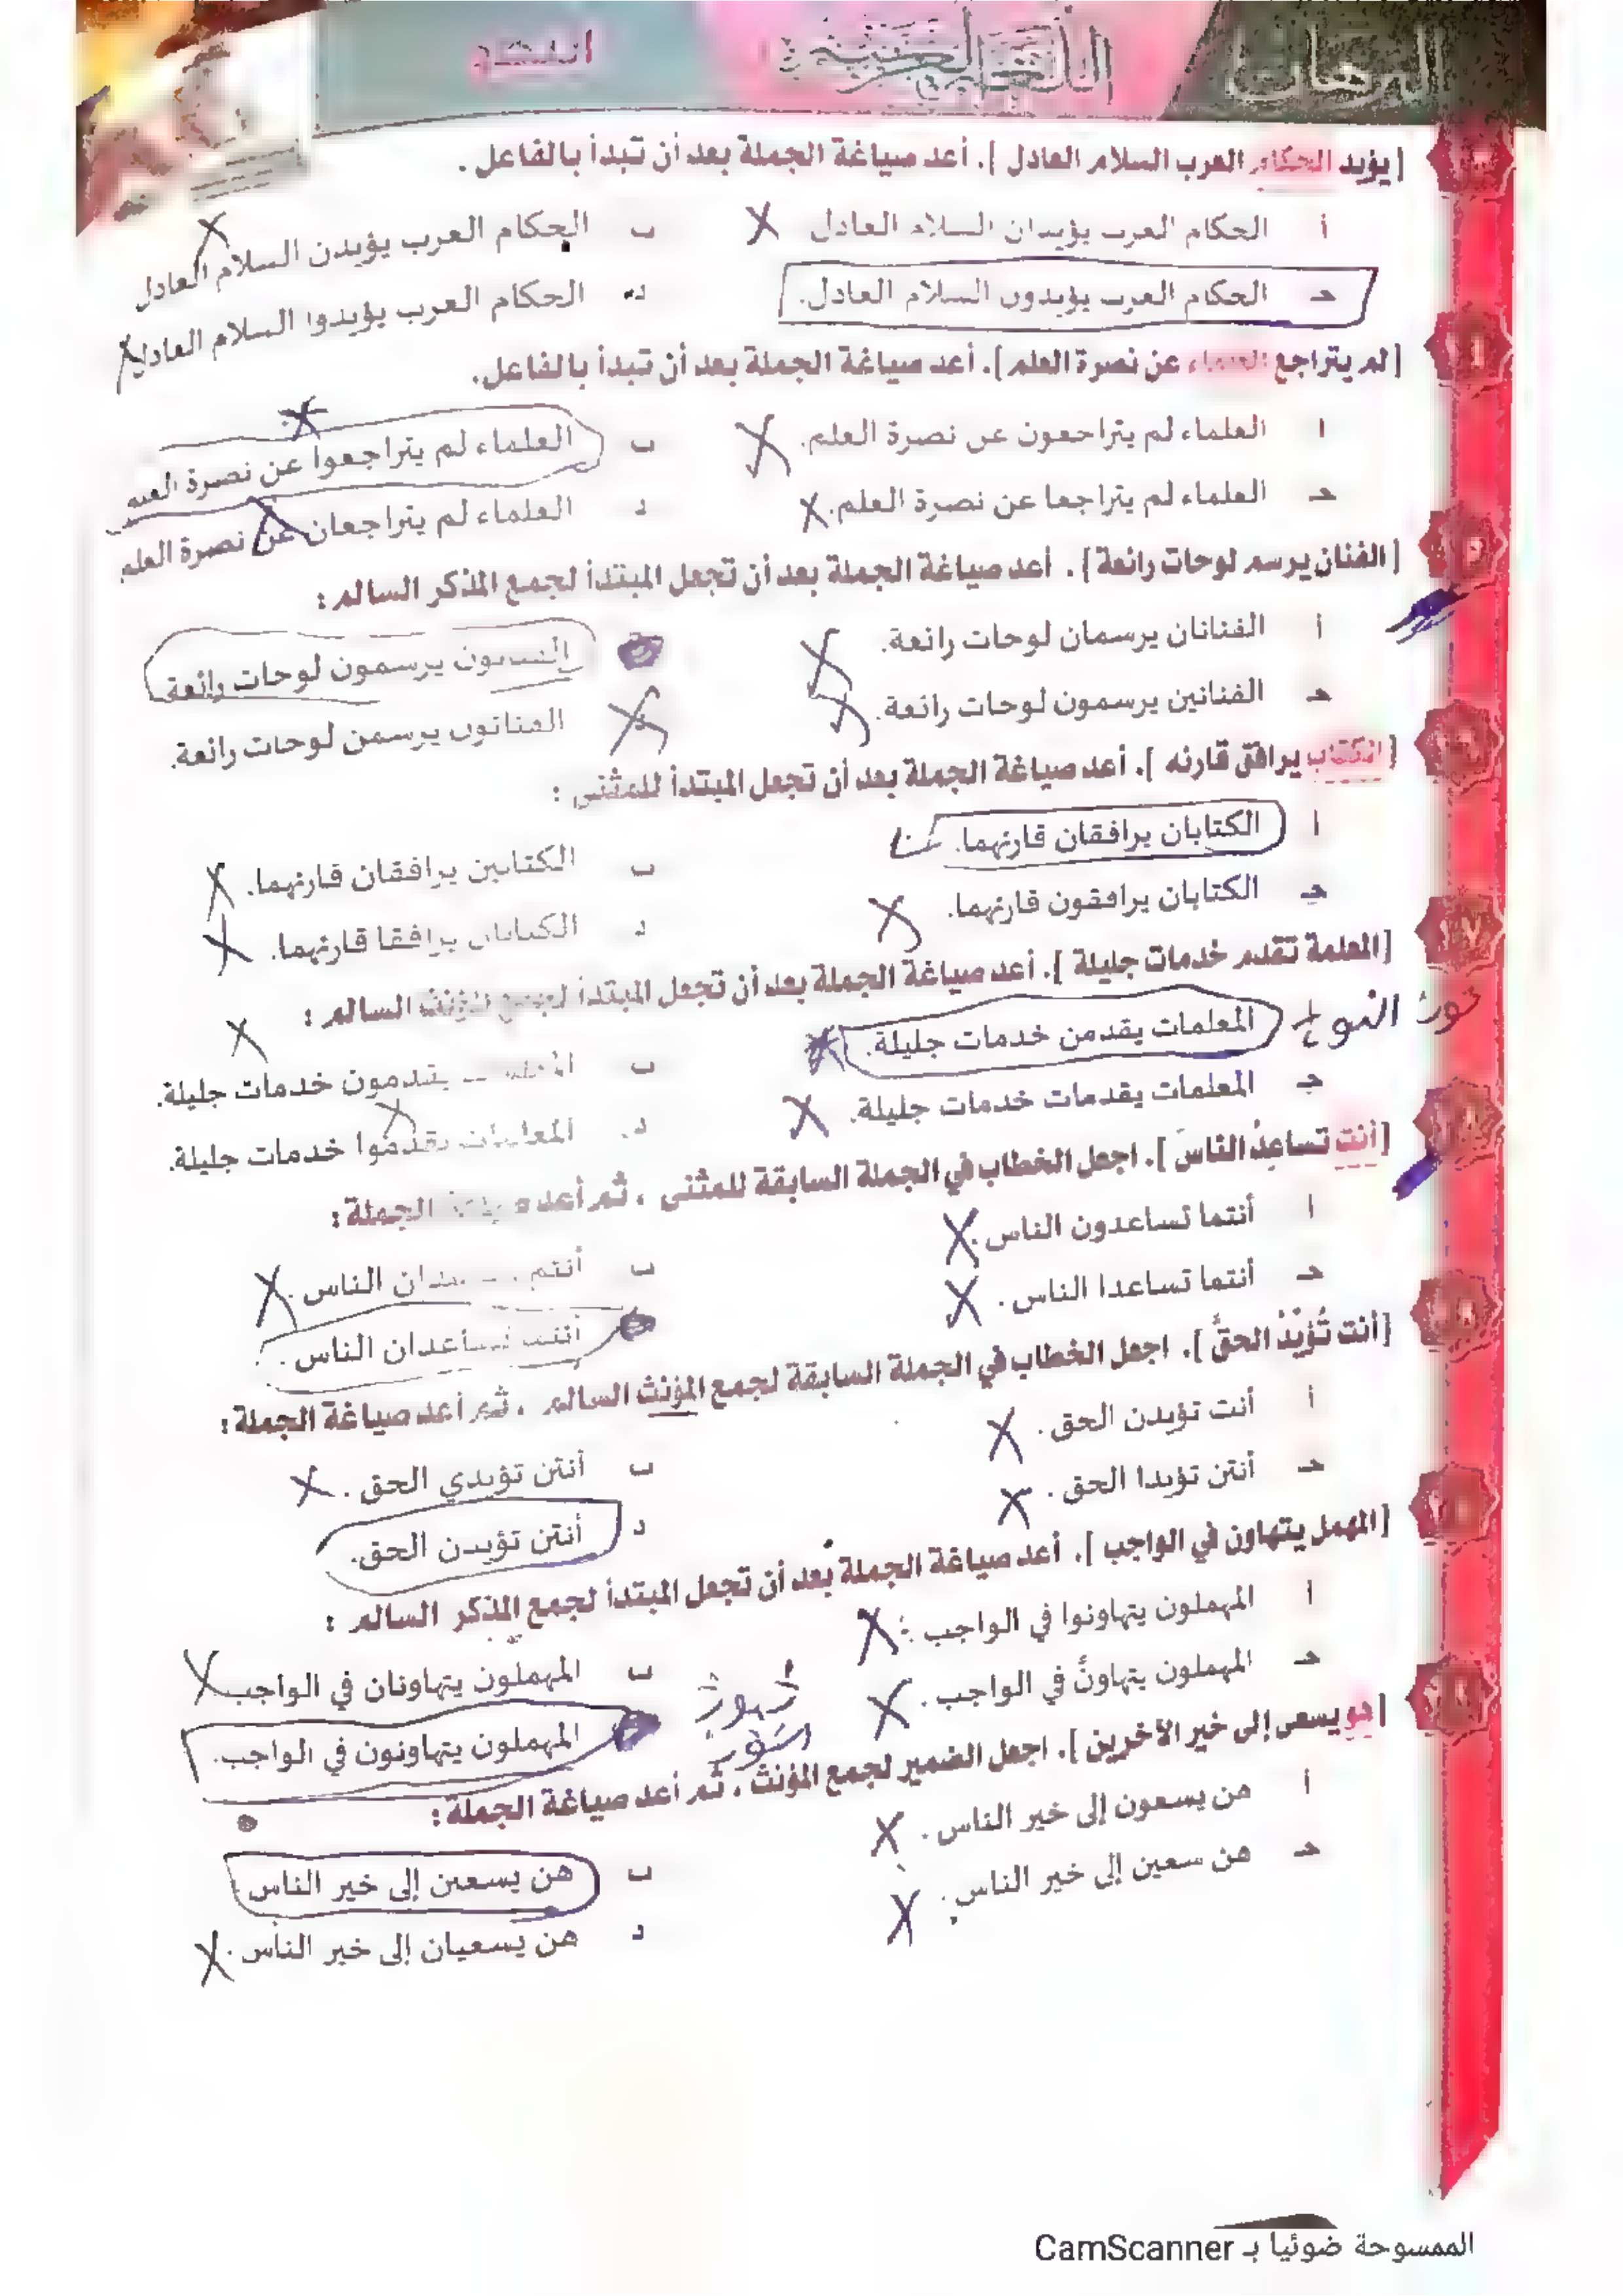 [يؤيد الحكام العرب السلام العادل]. أعد صياغة الجملة بعد أن تبدأ بالفاعل.
أ الحكام العرب يؤيدان السلام العادل
ب الحكام العرب يؤيدن السلام العادل
جـ الحكام العرب يؤيدون السلام العادل.
د. الحكام العرب يؤيدوا السلام العادل
[لم يتراجع العلماء عن نصرة العلم]. أعد صياغة الجملة بعد أن تبدأ بالفاعل.
أ العلماء لم يتراجعون عن نصرة العلم.
ب العلماء لم يتراجعوا عن نصرة
جـ العلماء لم يتراجعا عن نصرة العلم.
د العلماء لم يتراجعان عن نصرة العلم
[الفنان يرسم لوحات رائعة]. أعد صياغة الجملة بعد أن تجعل المبتدأ لجمع المذكر السالم:
أ الفنانان يرسمان لوحات رائعة.
يرسمون لوحات رائعة.
جـ الفنانين يرسمون لوحات رائعة.
الفنانون يرسمن لوحات رائعة.
[الكتاب يرافق قارئه]. أعد صياغة الجملة بعد أن تجعل المبتدأ للمثنى:
أ الكتابان يرافقان قارئهما.
ب الكتابين يرافقان قارئهما.
جـ الكتابان يرافقون قارئهما.
د الكتابان يرافقا قارئهما.
[المعلمة تقدم خدمات جليلة]. أعد صياغة الجملة بعد أن تجعل المبتدأ لجمع المؤنث السالم:
المعلمات يقدمن خدمات جليلة.
نون النسوة
ب يقدمون خدمات جليلة.
جـ المعلمات يقدمات خدمات جليلة.
د. المعلمات يقدموا خدمات جليلة.
[أنت تساعدُ الناسَ]. اجعل الخطاب في الجملة السابقة للمثنى، ثم أعد الجملة:
أ أنتما تساعدون الناس.
ب أنتم الناس.
جـ أنتما تساعدا الناس.
أنتما تساعدان الناس.
[أنت تُؤيّدُ الحقَّ]. اجعل الخطاب في الجملة السابقة لجمع المؤنث السالم، ثم أعد صياغة الجملة:
أ أنت تؤيدن الحق.
ب أنتن تؤيدي الحق.
جـ أنتن تؤيدا الحق.
د أنتن تؤيدن الحق.
[المهمل يتهاون في الواجب]. أعد صياغة الجملة بعد أن تجعل المبتدأ لجمع المذكر السالم:
أ المهملون يتهاونوا في الواجب.
ب المهملون يتهاونان في الواجب
جـ المهملون يتهاونُ في الواجب.
المهملون يتهاونون في الواجب.
[هو يسعى إلى خير الآخرين]. اجعل الضمير لجمع المؤنث، ثم أعد صياغة الجملة:
أ هن يسعون إلى خير الناس.
ب هن يسعين إلى خير الناس
جـ هن سعين إلى خير الناس.
د هن يسعيان إلى خير الناس.
الممسوحة ضوئيا بـ CamScanner